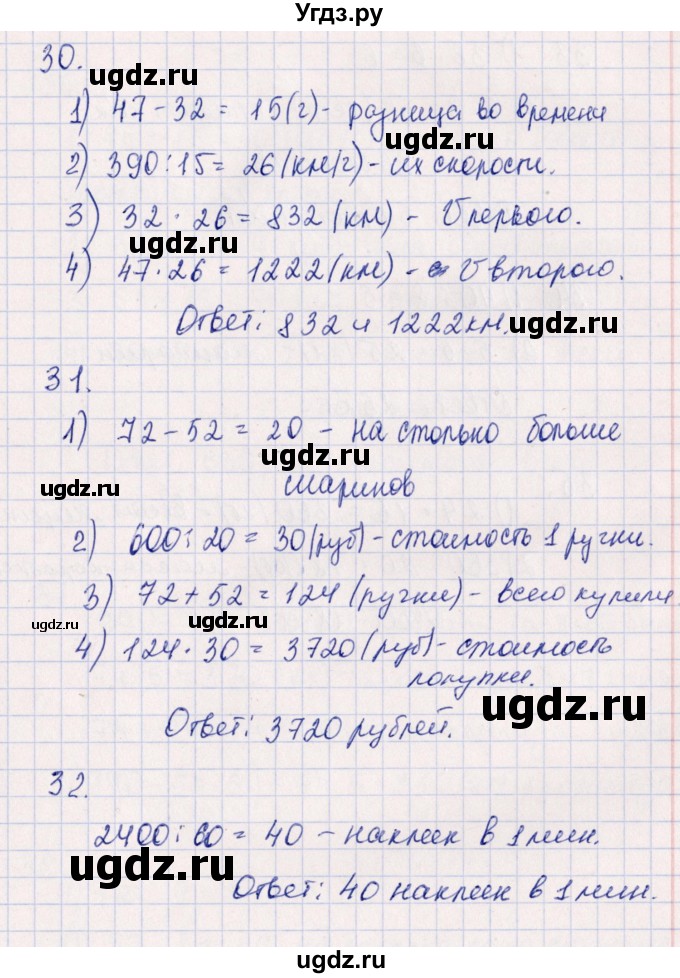 Угдз.ру
30.
ugdz.ru
1) 47-32 = 15(г)- разница во времени
ugdz.ru
2) 390:15= 26(км/г)- их скорости.
3) 32·26=832(км)- Vпервого.
ugdz.ru
ugdz.ru
4) 47·26=1222(км)- Vвторого.
Ответ: 832 и 1222км.
ugdz.ru
31.
1) 72-52=20 - на столько больше
ugdz.ru
ugdz.ru
шариков
2) 600:20=30(руб)-стоимость 1 ручки.
3) 72+52=124(ручки)- всего купили
ugdz.ru
ugdz.ru
4) 124·30=3720(руб)-стоимость
покупки.
ugdz.ru
Ответ: 3720 рублей.
32.
2400:60=40 -наклеек в 1мин.
ugdz.ru
Ответ: 40 наклеек в 1мин.
ugdz.ru